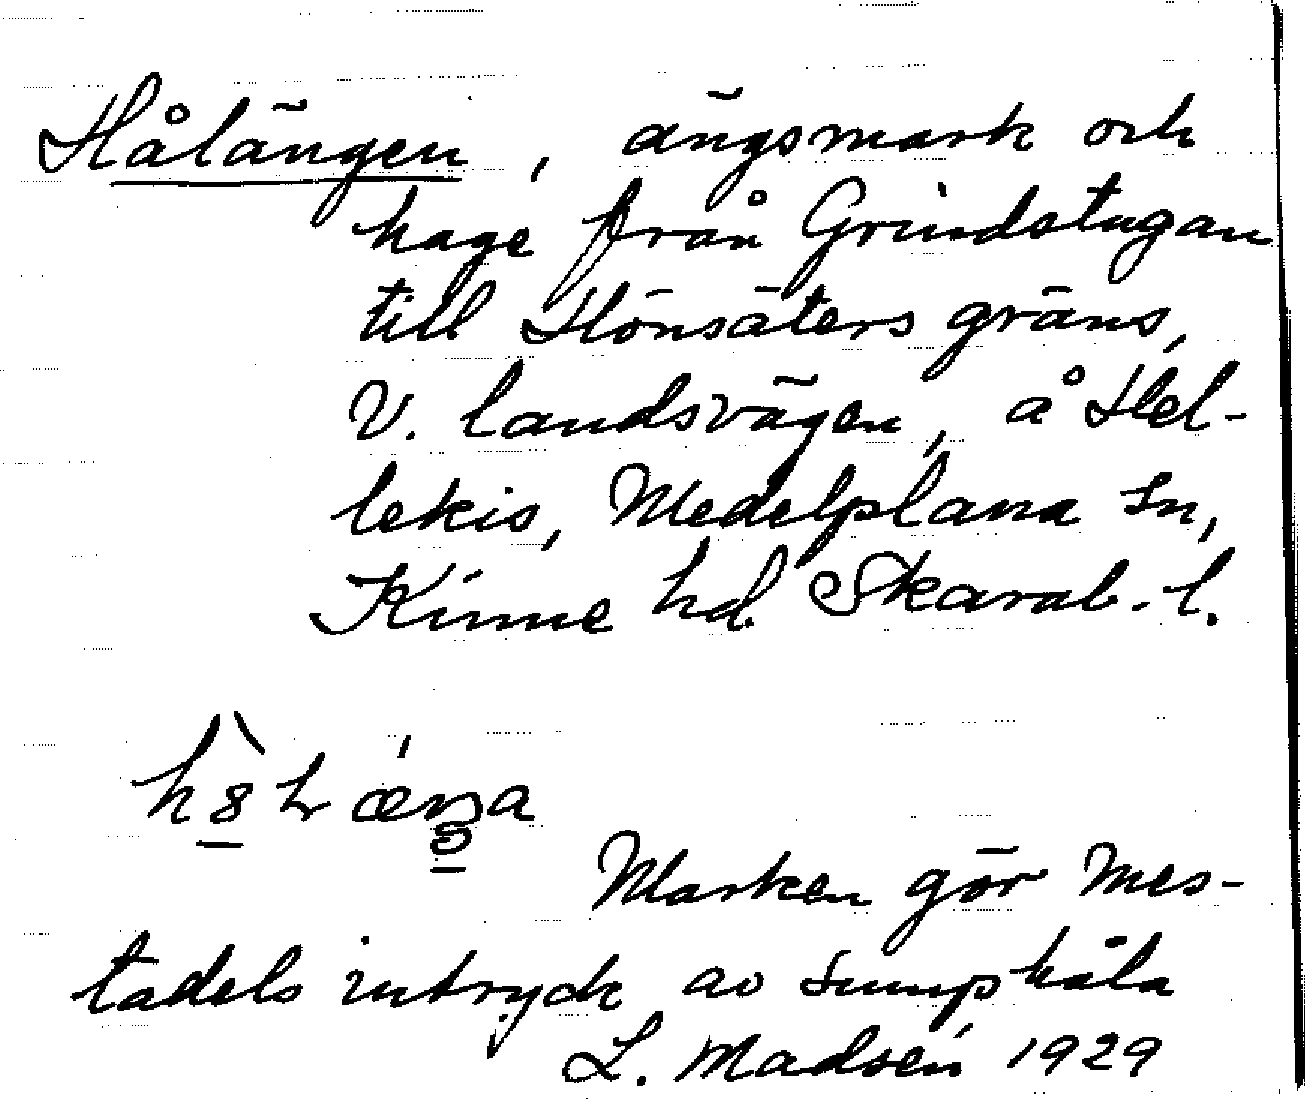 Hålängen, ängsmark och
hage från Grindstugan
till Hönsäters gräns,
V. landsvägen, å Hel-
lekis, Medelplana sn,
Kinne hd. Skarab. l.
Marken gör mes-
tadels intryck av sumphåla
L. Madsén 1929